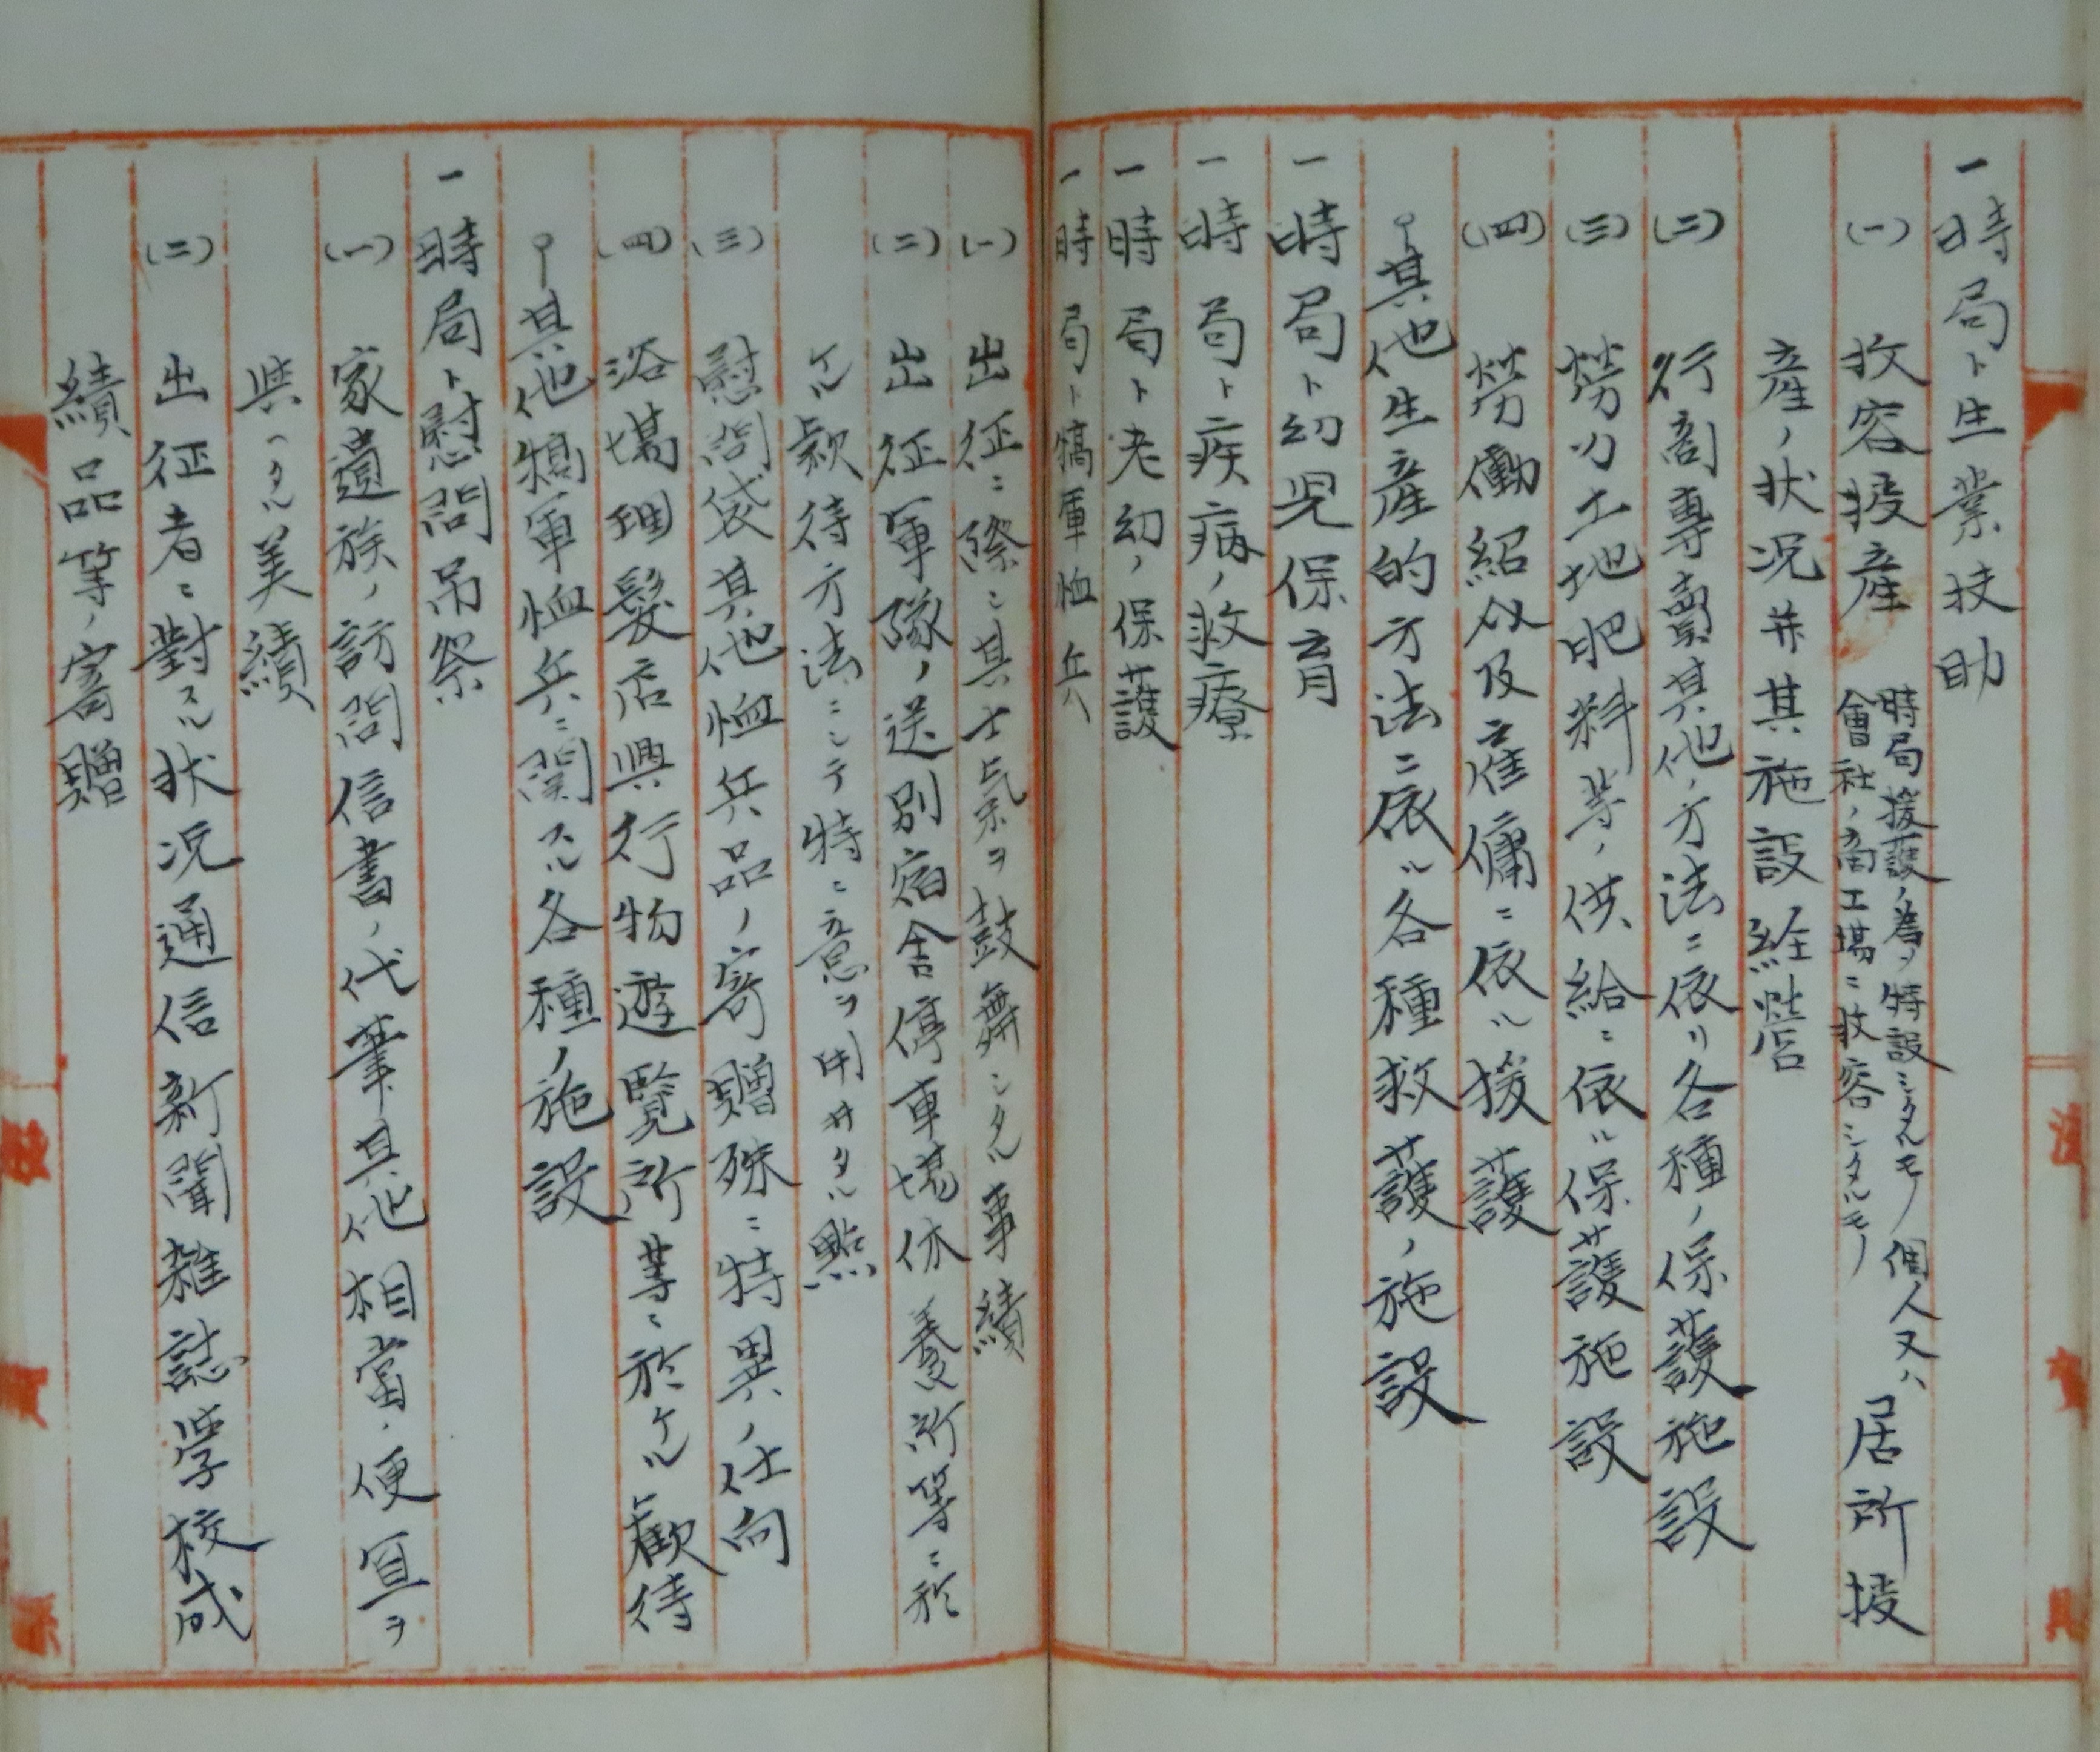 一時局ト生業扶助
(一)收容授産 時局援護ノ為メ特設シタルモノ個人又ハ
會社ノ商工場ニ收容シタルモノ 居所授
産ノ状况并其施設経營
(二)行商專賣其他ノ方法ニ依リ各種ノ保護施設
(三)勞力土地肥料等ノ供給ニ依ル保護施設
(四)勞働紹介及雇傭ニ依ル援護
其他生産的方法ニ依ル各種救護ノ施設
一時局ト幼児保育
一時局ト疾病ノ救療
一時局ト老幼ノ保護
一時局ト犒軍恤兵
(一)出征ニ際シ其士氣ヲ鼓舞シタル事績
(二)出征軍隊ノ送別宿舎停車場休養所等ニ於
ケル款待方法ニシテ特ニ意ヲ用ヰタル點
(三)慰問袋其他恤兵品ノ寄贈殊ニ特異ノ仕向
(四)浴場理髪店興行物遊覧所等ニ於ケル歓待
其他犒軍恤兵ニ関スル各種ノ施設
一時局ト慰問吊祭
(一)家遺族ノ訪問信書ノ代筆其他相當ノ便宜ヲ
與ヘタル美績
(二)出征者ニ對スル状况通信新聞雑誌学校成
績品等ノ寄贈